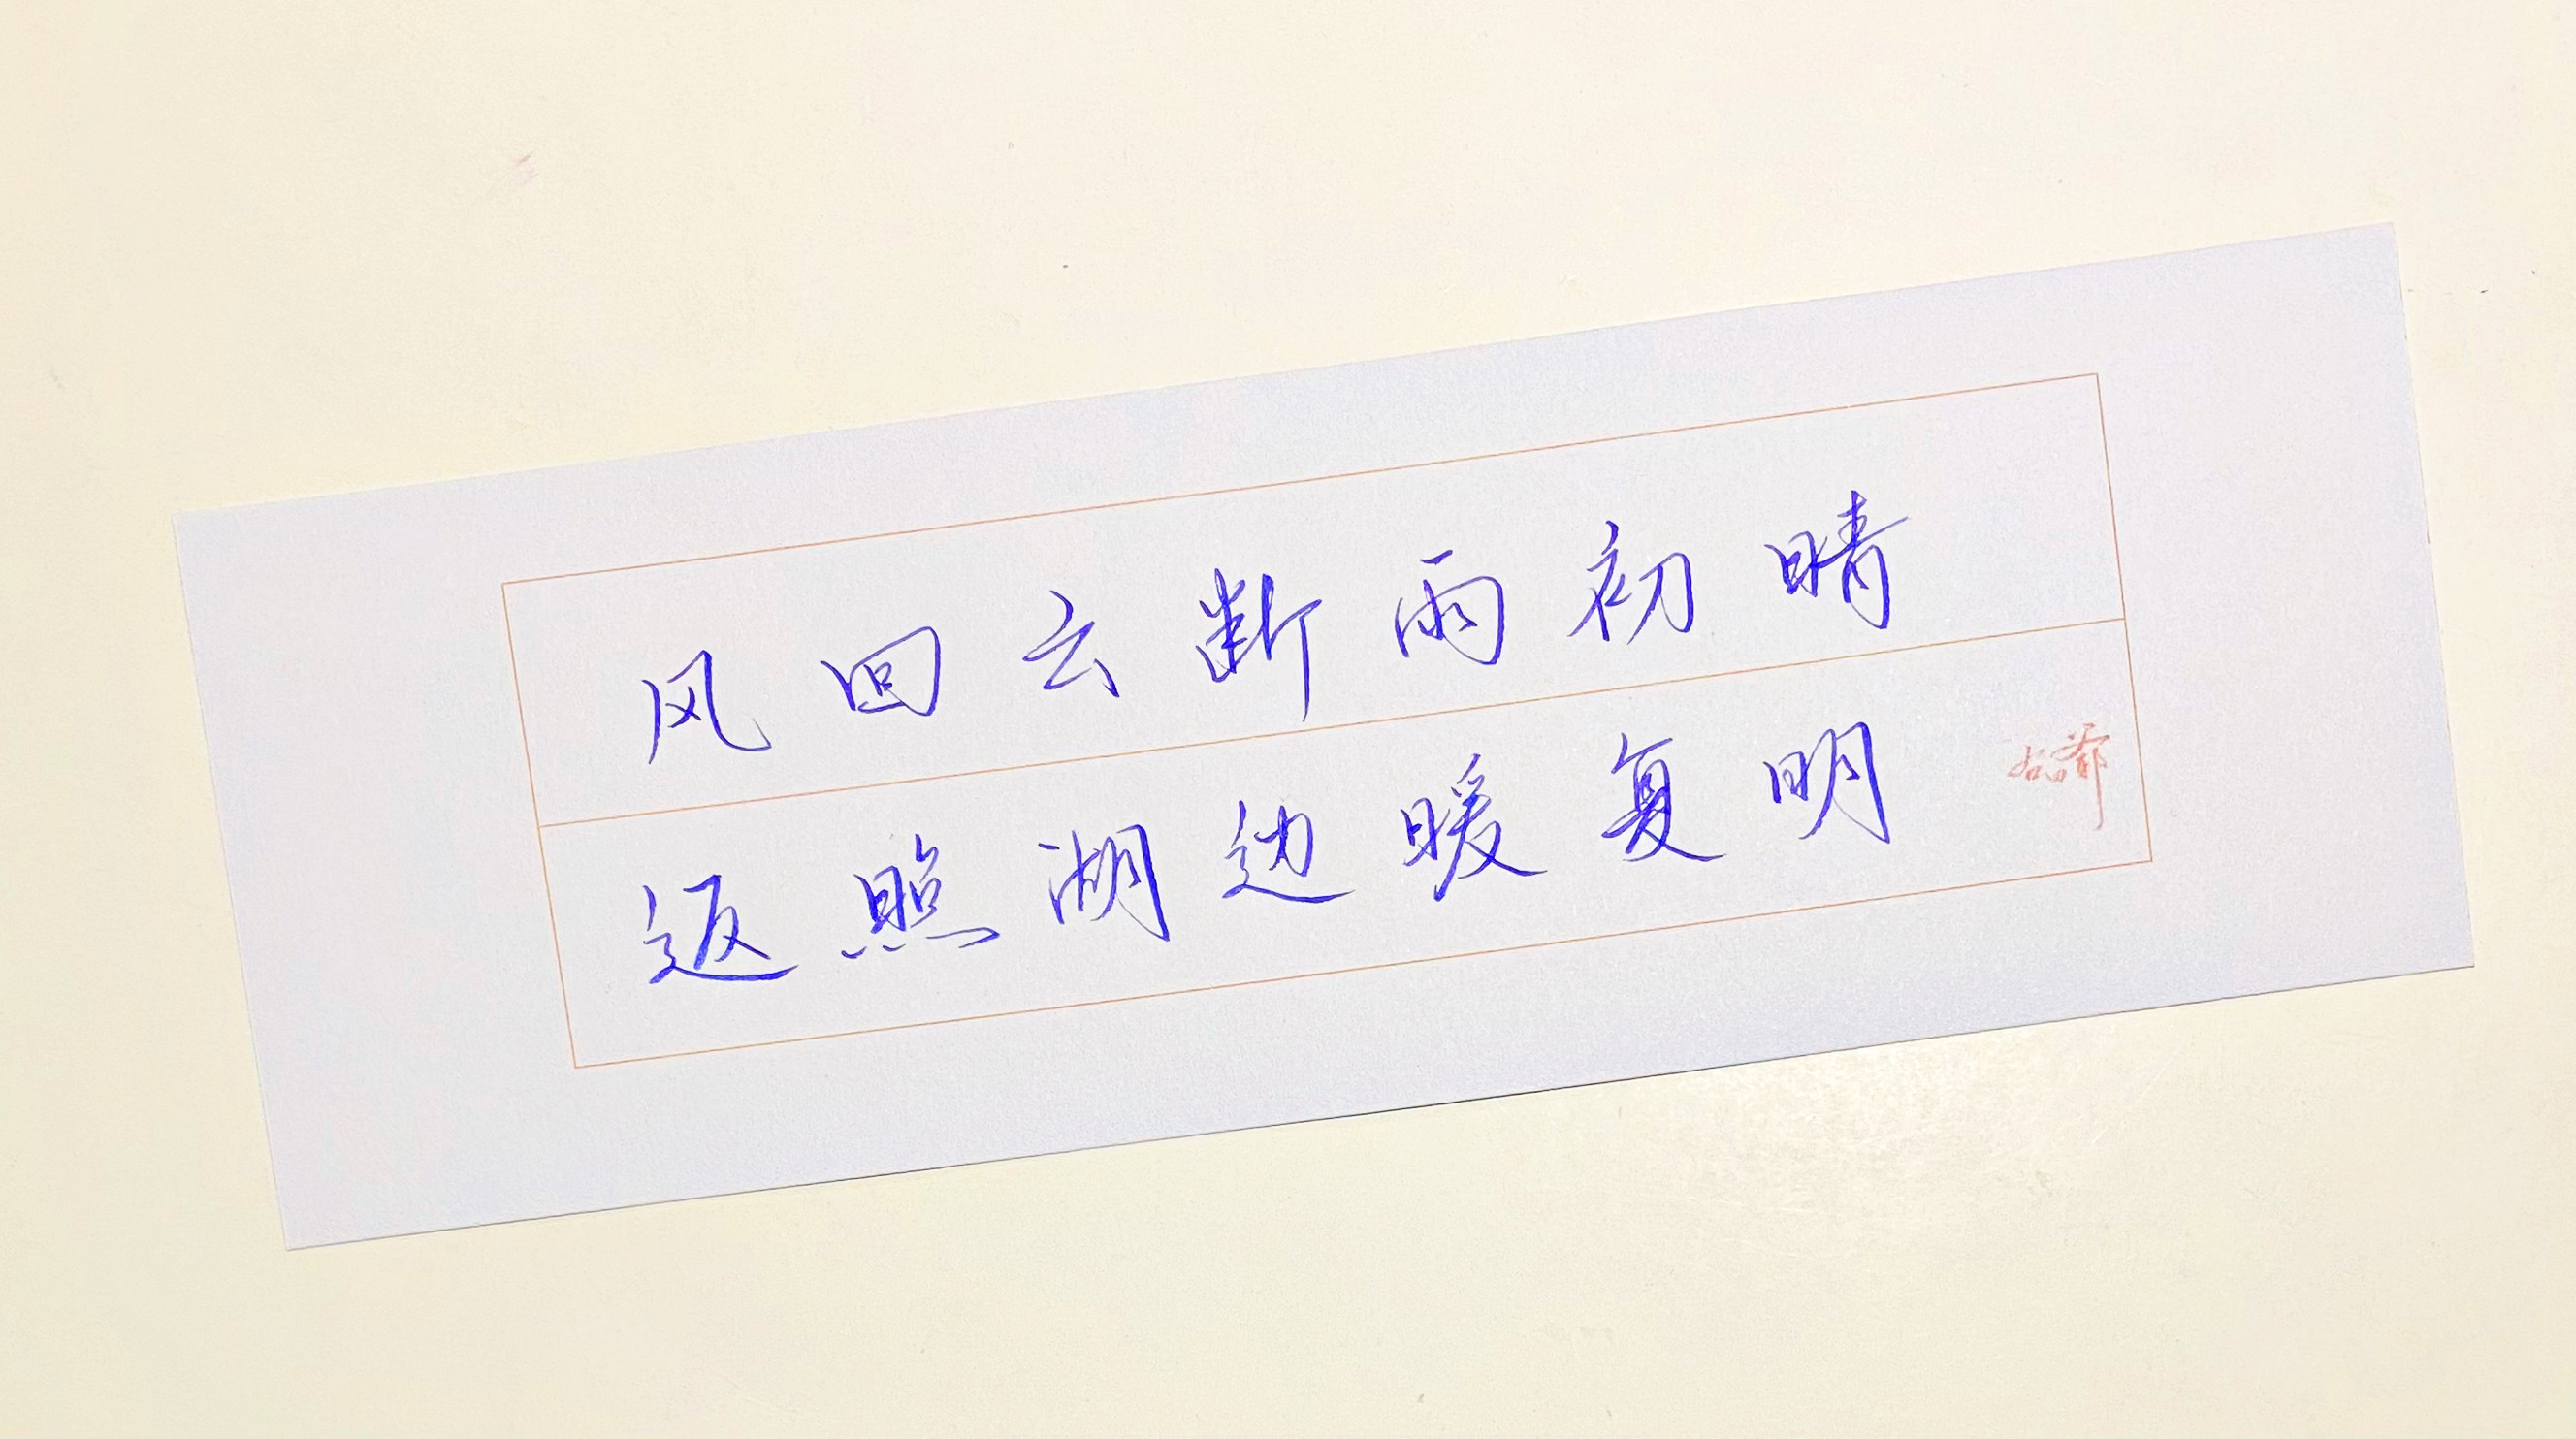 风回云断雨初晴
返照湖边暖复明